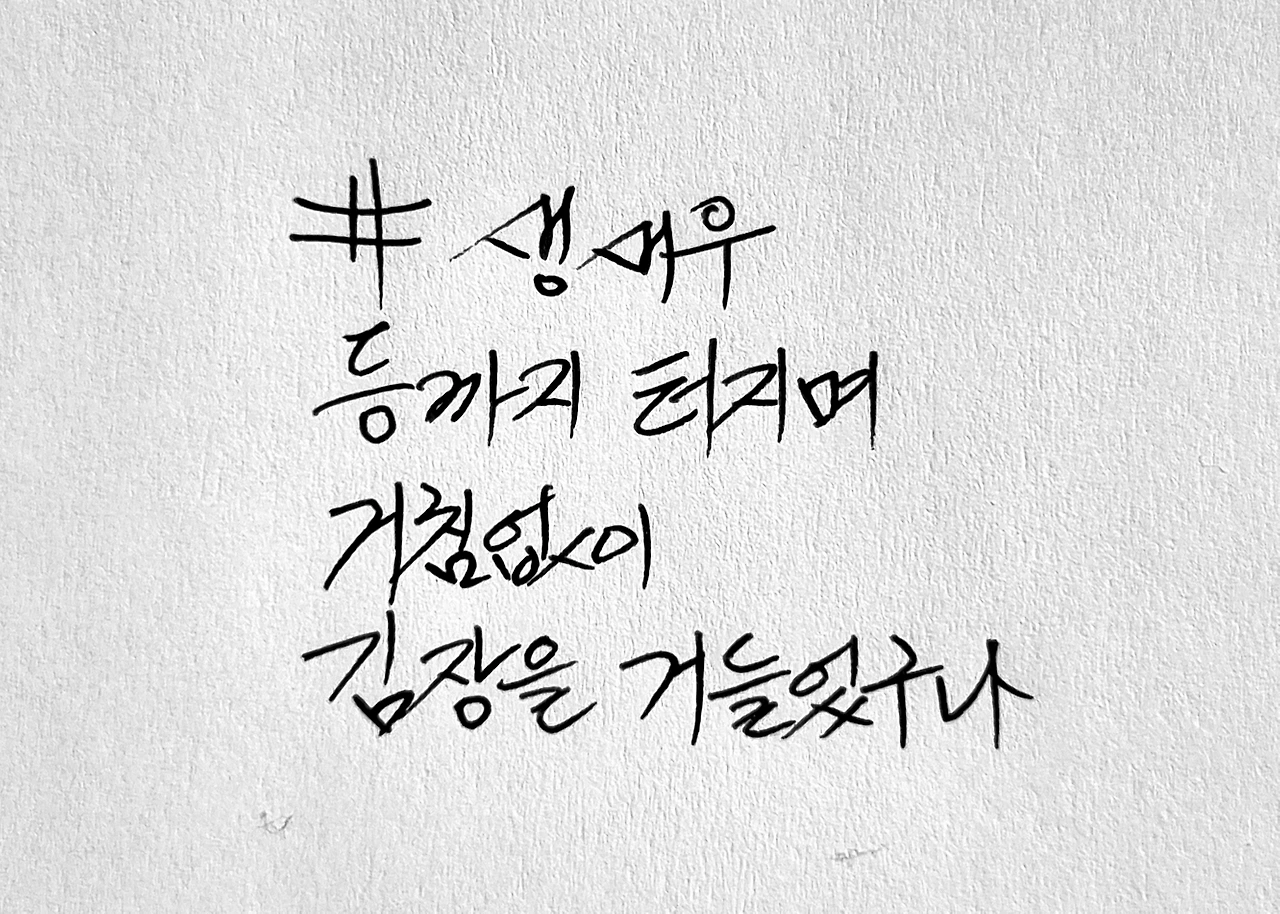 # 생새우
등까지 터지며
거침없이
김장을 거들었구나